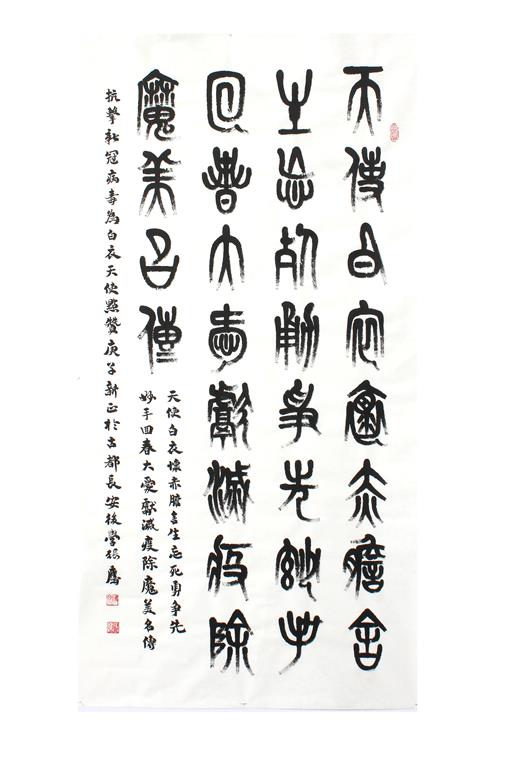 天使白衣懷赤膽舍
生忘死勇爭先妙手
回春大愛獻滅疫除
魔美名傳
天使白衣懷赤膽舍生忘死勇爭先
妙手回春大愛獻滅疫除魔美名傳
抗擊新冠病毒為白衣天使點贊庚子新正於古都長安後學